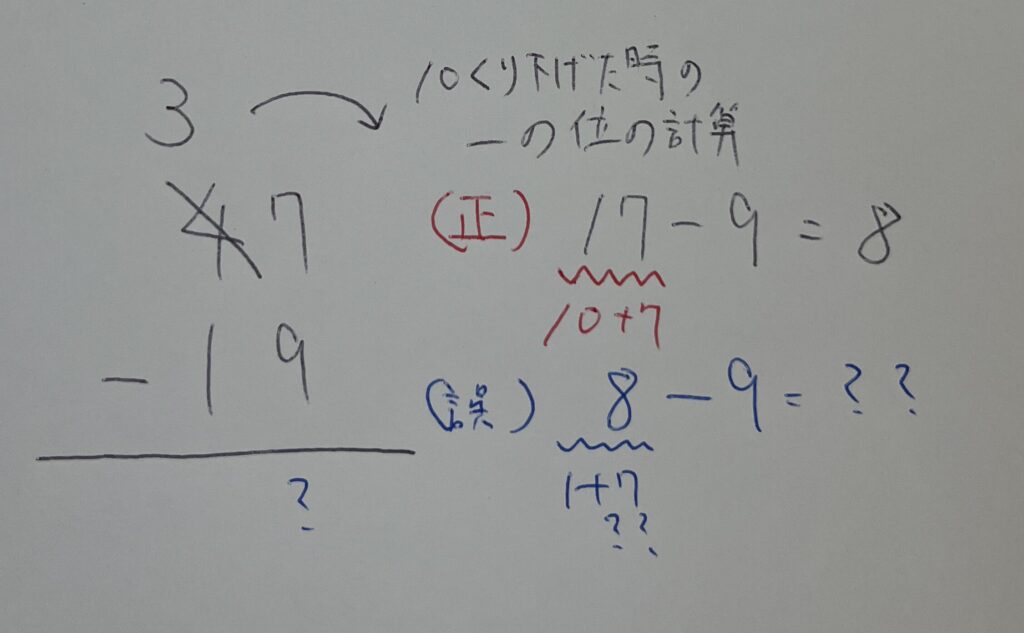 3
10くり下げた時の
一の位の計算
47
(正) 17-9=8
10+7
-19
(誤) 8-9=??
1+7
??
?